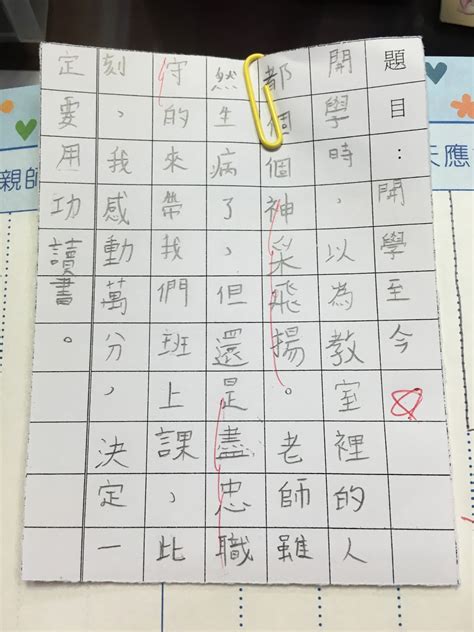 題目：開學至今
開學時，以為教室裡的人
都個個神采飛揚。老師雖
然生病了，但還是盡忠職
守的來帶我們班上課，此
刻，我感動萬分，決定一
定要用功讀書。
親師